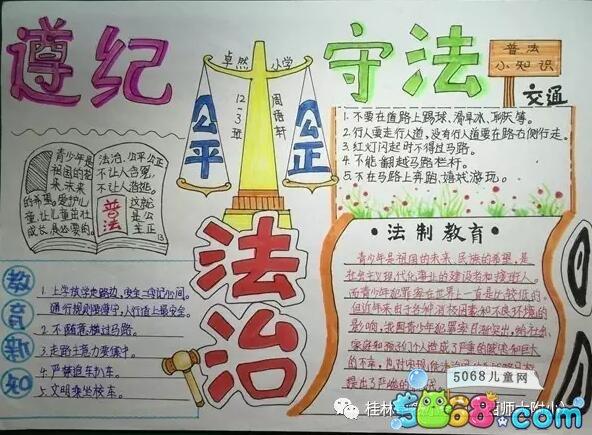 遵纪
守法
普法
小知识
交通
卓然
小学
12-3班
周语轩
公平
公正
1. 不要在道路上踢球、滑旱冰、聊天等。
2. 行人要走人行道，没有人行道要在路右侧行走。
3. 红灯闪起时不得过马路。
4. 不能翻越马路栏杆。
5. 不在马路上奔跑、嬉戏游玩。
青少年是
祖国的花
朵，未来
的希望。爱护儿
童，让儿童茁壮
成长，是必要的。
法治，公平公正
不让人含冤，
不让人
普法
这就
是公
正
13
法治
教育新知
1. 上学放学走路边，安全二字记心间。
通行规则要遵守，人行道上最安全。
2. 不随意横过马路。
3. 走路注意力要集中。
4. 严禁追车扒车。
5. 文明乘坐校车。
·法制教育·
青少年是祖国的未来，民族的希望，是
社会主义现代化事业的建设者和接班人。
而青少年犯罪案在世界上一直是比较低的，
但近年来由于各种消极因素和不良环境的
影响，我国青少年犯罪案日渐突出，给社会、
家庭和孩子们个人造成了严重的破坏和巨大
的不幸，也对实现依法治国
造成了严重的
5068儿童网
5068.com
桂林
师大附小